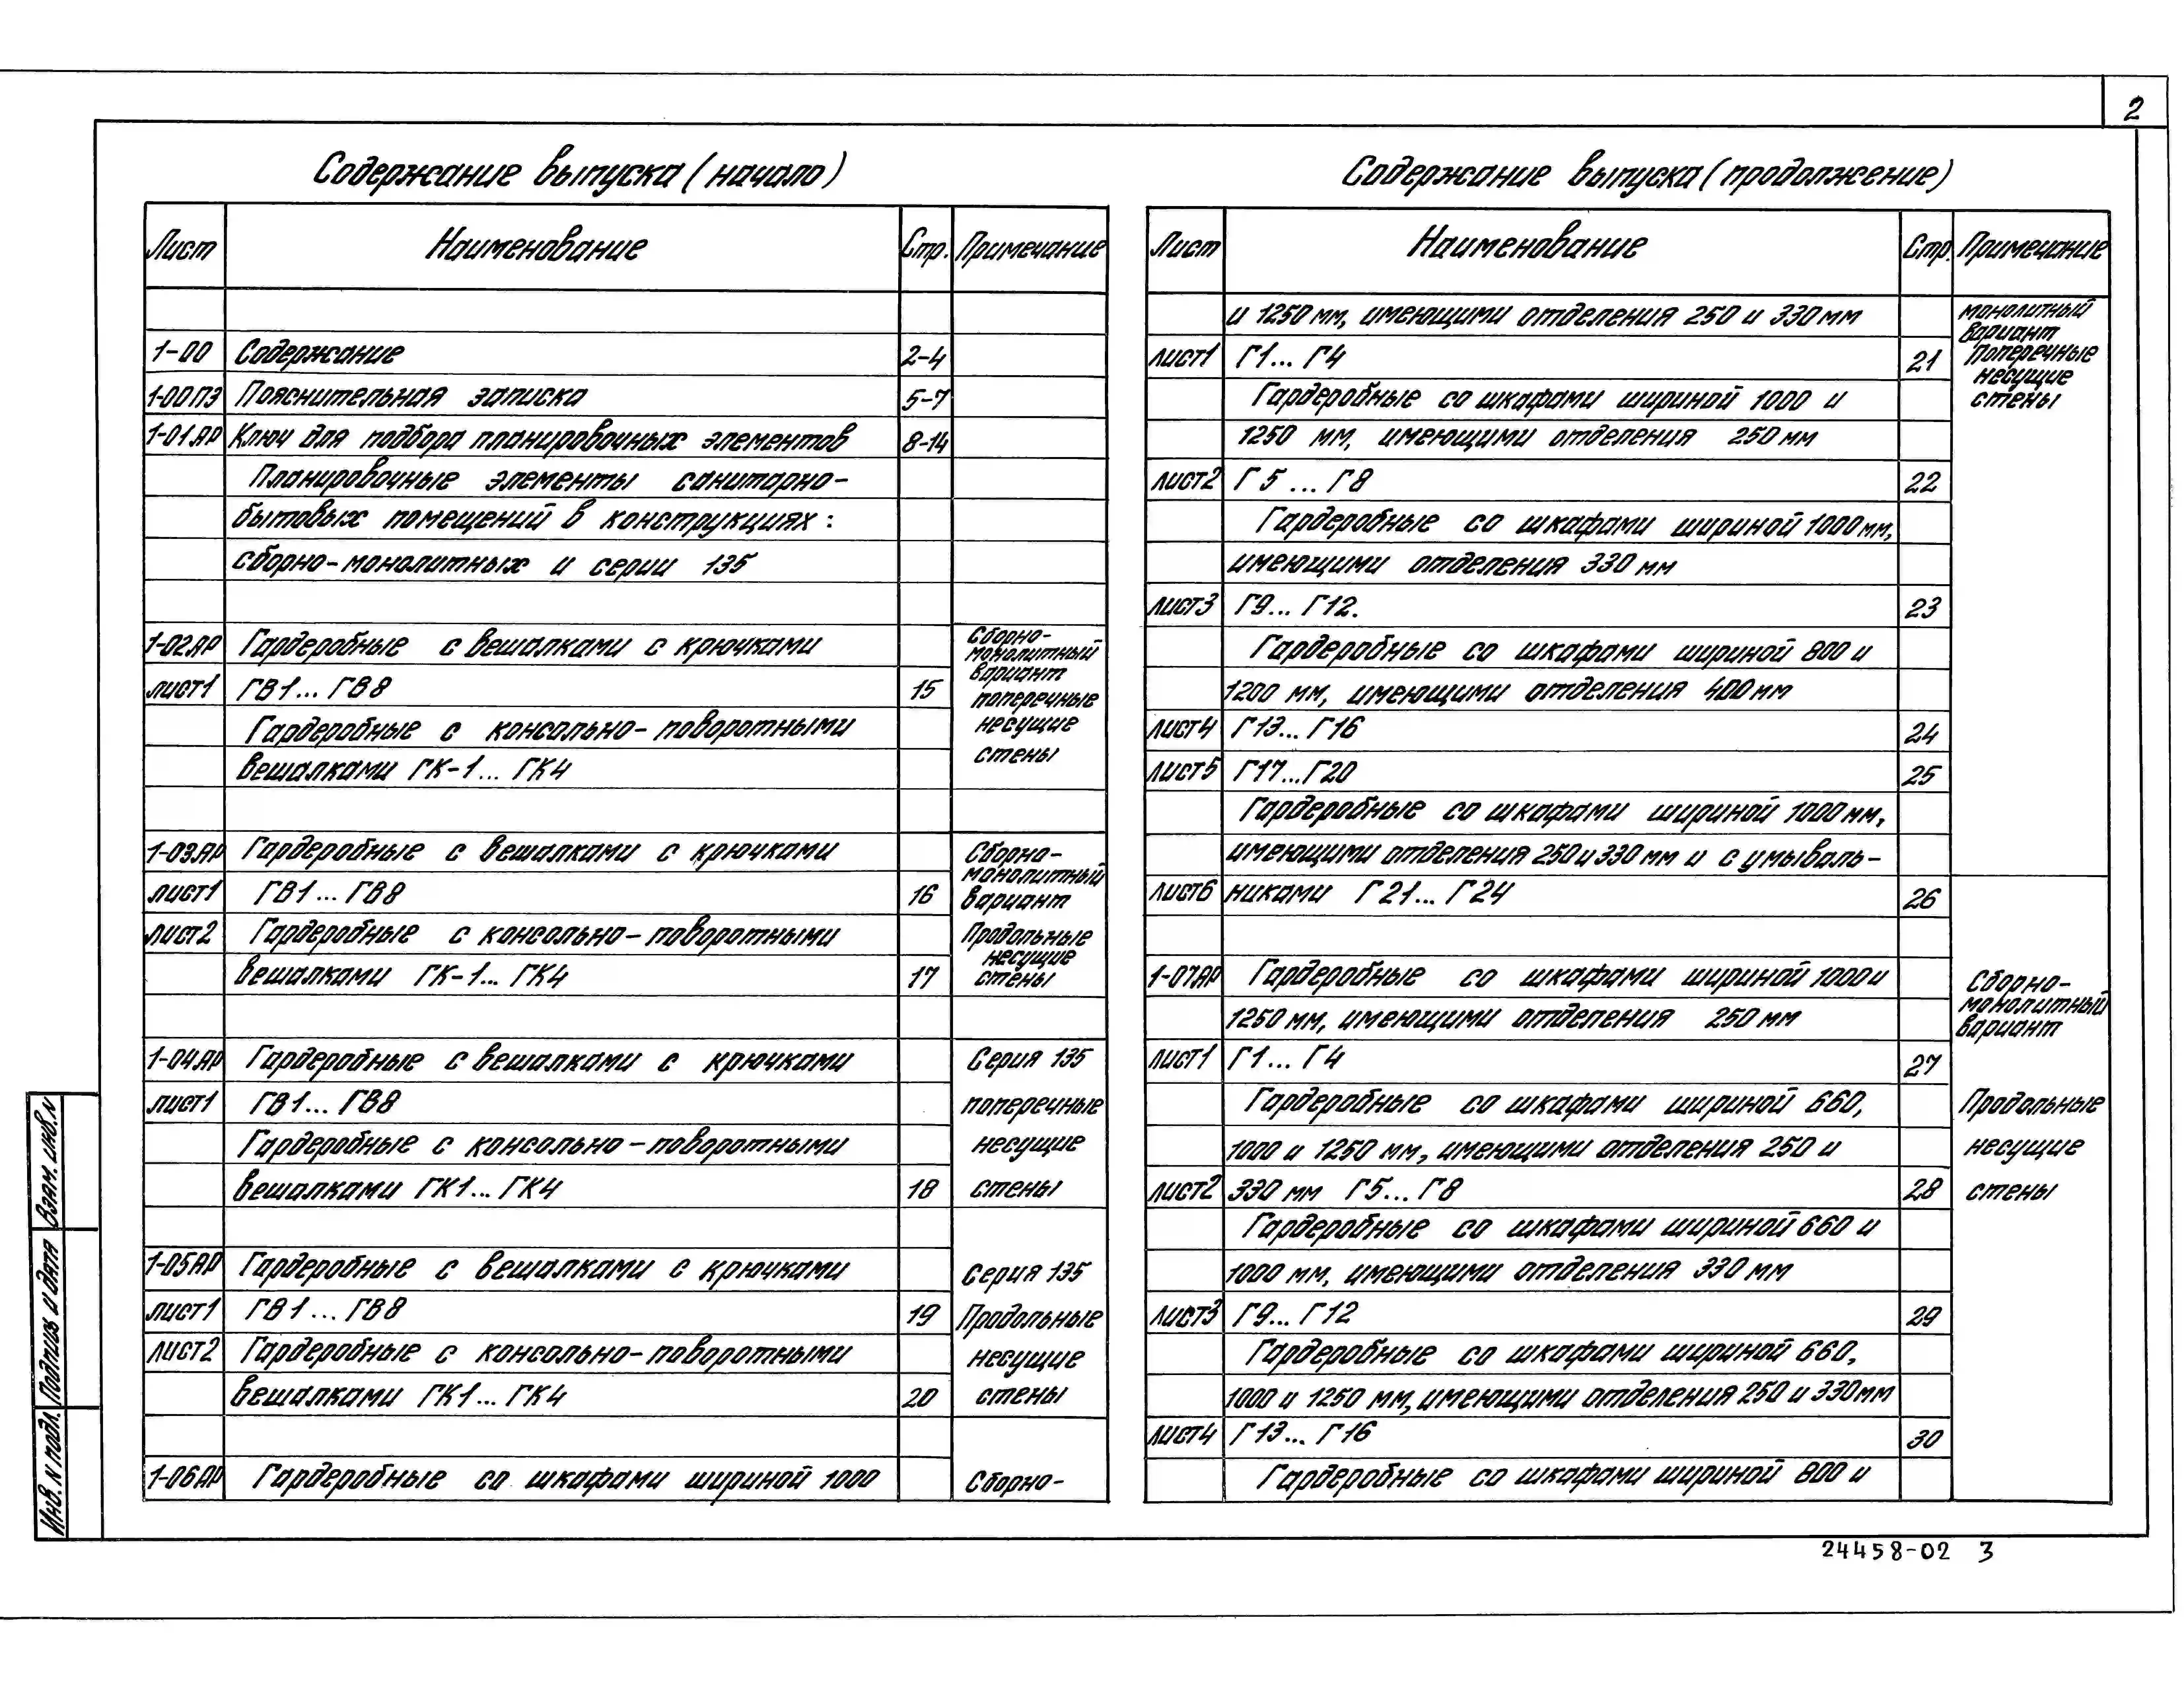 2
Содержание выпуска (начало)
Лист Наименование Стр. Примечание
1-00 Содержание 2-4
1-00ПЗ Пояснительная записка 5-7
1-01.АР Ключ для подбора планировочных элементов 8-14
Планировочные элементы санитарно-
бытовых помещений в конструкциях:
сборно-монолитных и серии 135
1-02.АР Гардеробные с вешалками с крючками Сборно-
монолитный
вариант
лист1 ГВ1... ГВ8 15 поперечные
Гардеробные с консольно-поворотными несущие
вешалками ГК-1... ГК4 стены
1-03.АР Гардеробные с вешалками с крючками Сборно-
монолитный
лист1 ГВ1... ГВ8 16 вариант
лист2 Гардеробные с консольно-поворотными Продольные
несущие
вешалками ГК-1... ГК4 17 стены
1-04.АР Гардеробные с вешалками с крючками Серия 135
лист1 ГВ1... ГВ8 поперечные
Гардеробные с консольно-поворотными несущие
вешалками ГК1... ГК4 18 стены
1-05АР Гардеробные с вешалками с крючками Серия 135
лист1 ГВ1... ГВ8 19 Продольные
лист2 Гардеробные с консольно-поворотными несущие
вешалками ГК1... ГК4 20 стены
1-06.АР Гардеробные со шкафами шириной 1000 Сборно-
Содержание выпуска (продолжение)
Лист Наименование Стр. Примечание
и 1250 мм, имеющими отделения 250 и 330 мм монолитный
вариант
лист1 Г1... Г4 21 Поперечные
несущие
Гардеробные со шкафами шириной 1000 и стены
1250 мм, имеющими отделения 250 мм
лист2 Г5 ... Г8 22
Гардеробные со шкафами шириной 1000 мм,
имеющими отделения 330 мм
лист3 Г9... Г12. 23
Гардеробные со шкафами шириной 800 и
1200 мм, имеющими отделения 400 мм
лист4 Г13... Г16 24
лист5 Г17...Г20 25
Гардеробные со шкафами шириной 1000 мм,
имеющими отделения 250 и 330 мм и с умываль-
лист6 никами Г21... Г24 26
1-07АР Гардеробные со шкафами шириной 1000 и Сборно-
монолитный
1250 мм, имеющими отделения 250 мм вариант
лист1 Г1... Г4 27
Гардеробные со шкафами шириной 660, Продольные
1000 и 1250 мм, имеющими отделения 250 и несущие
лист2 330 мм Г5... Г8 28 стены
Гардеробные со шкафами шириной 660 и
1000 мм, имеющими отделения 330 мм
лист3 Г9... Г12 29
Гардеробные со шкафами шириной 660,
1000 и 1250 мм, имеющими отделения 250 и 330мм
лист4 Г13... Г16 30
Гардеробные со шкафами шириной 800 и
Инв. N подл. Подпись и дата Взам. инв. N
24458-02 3